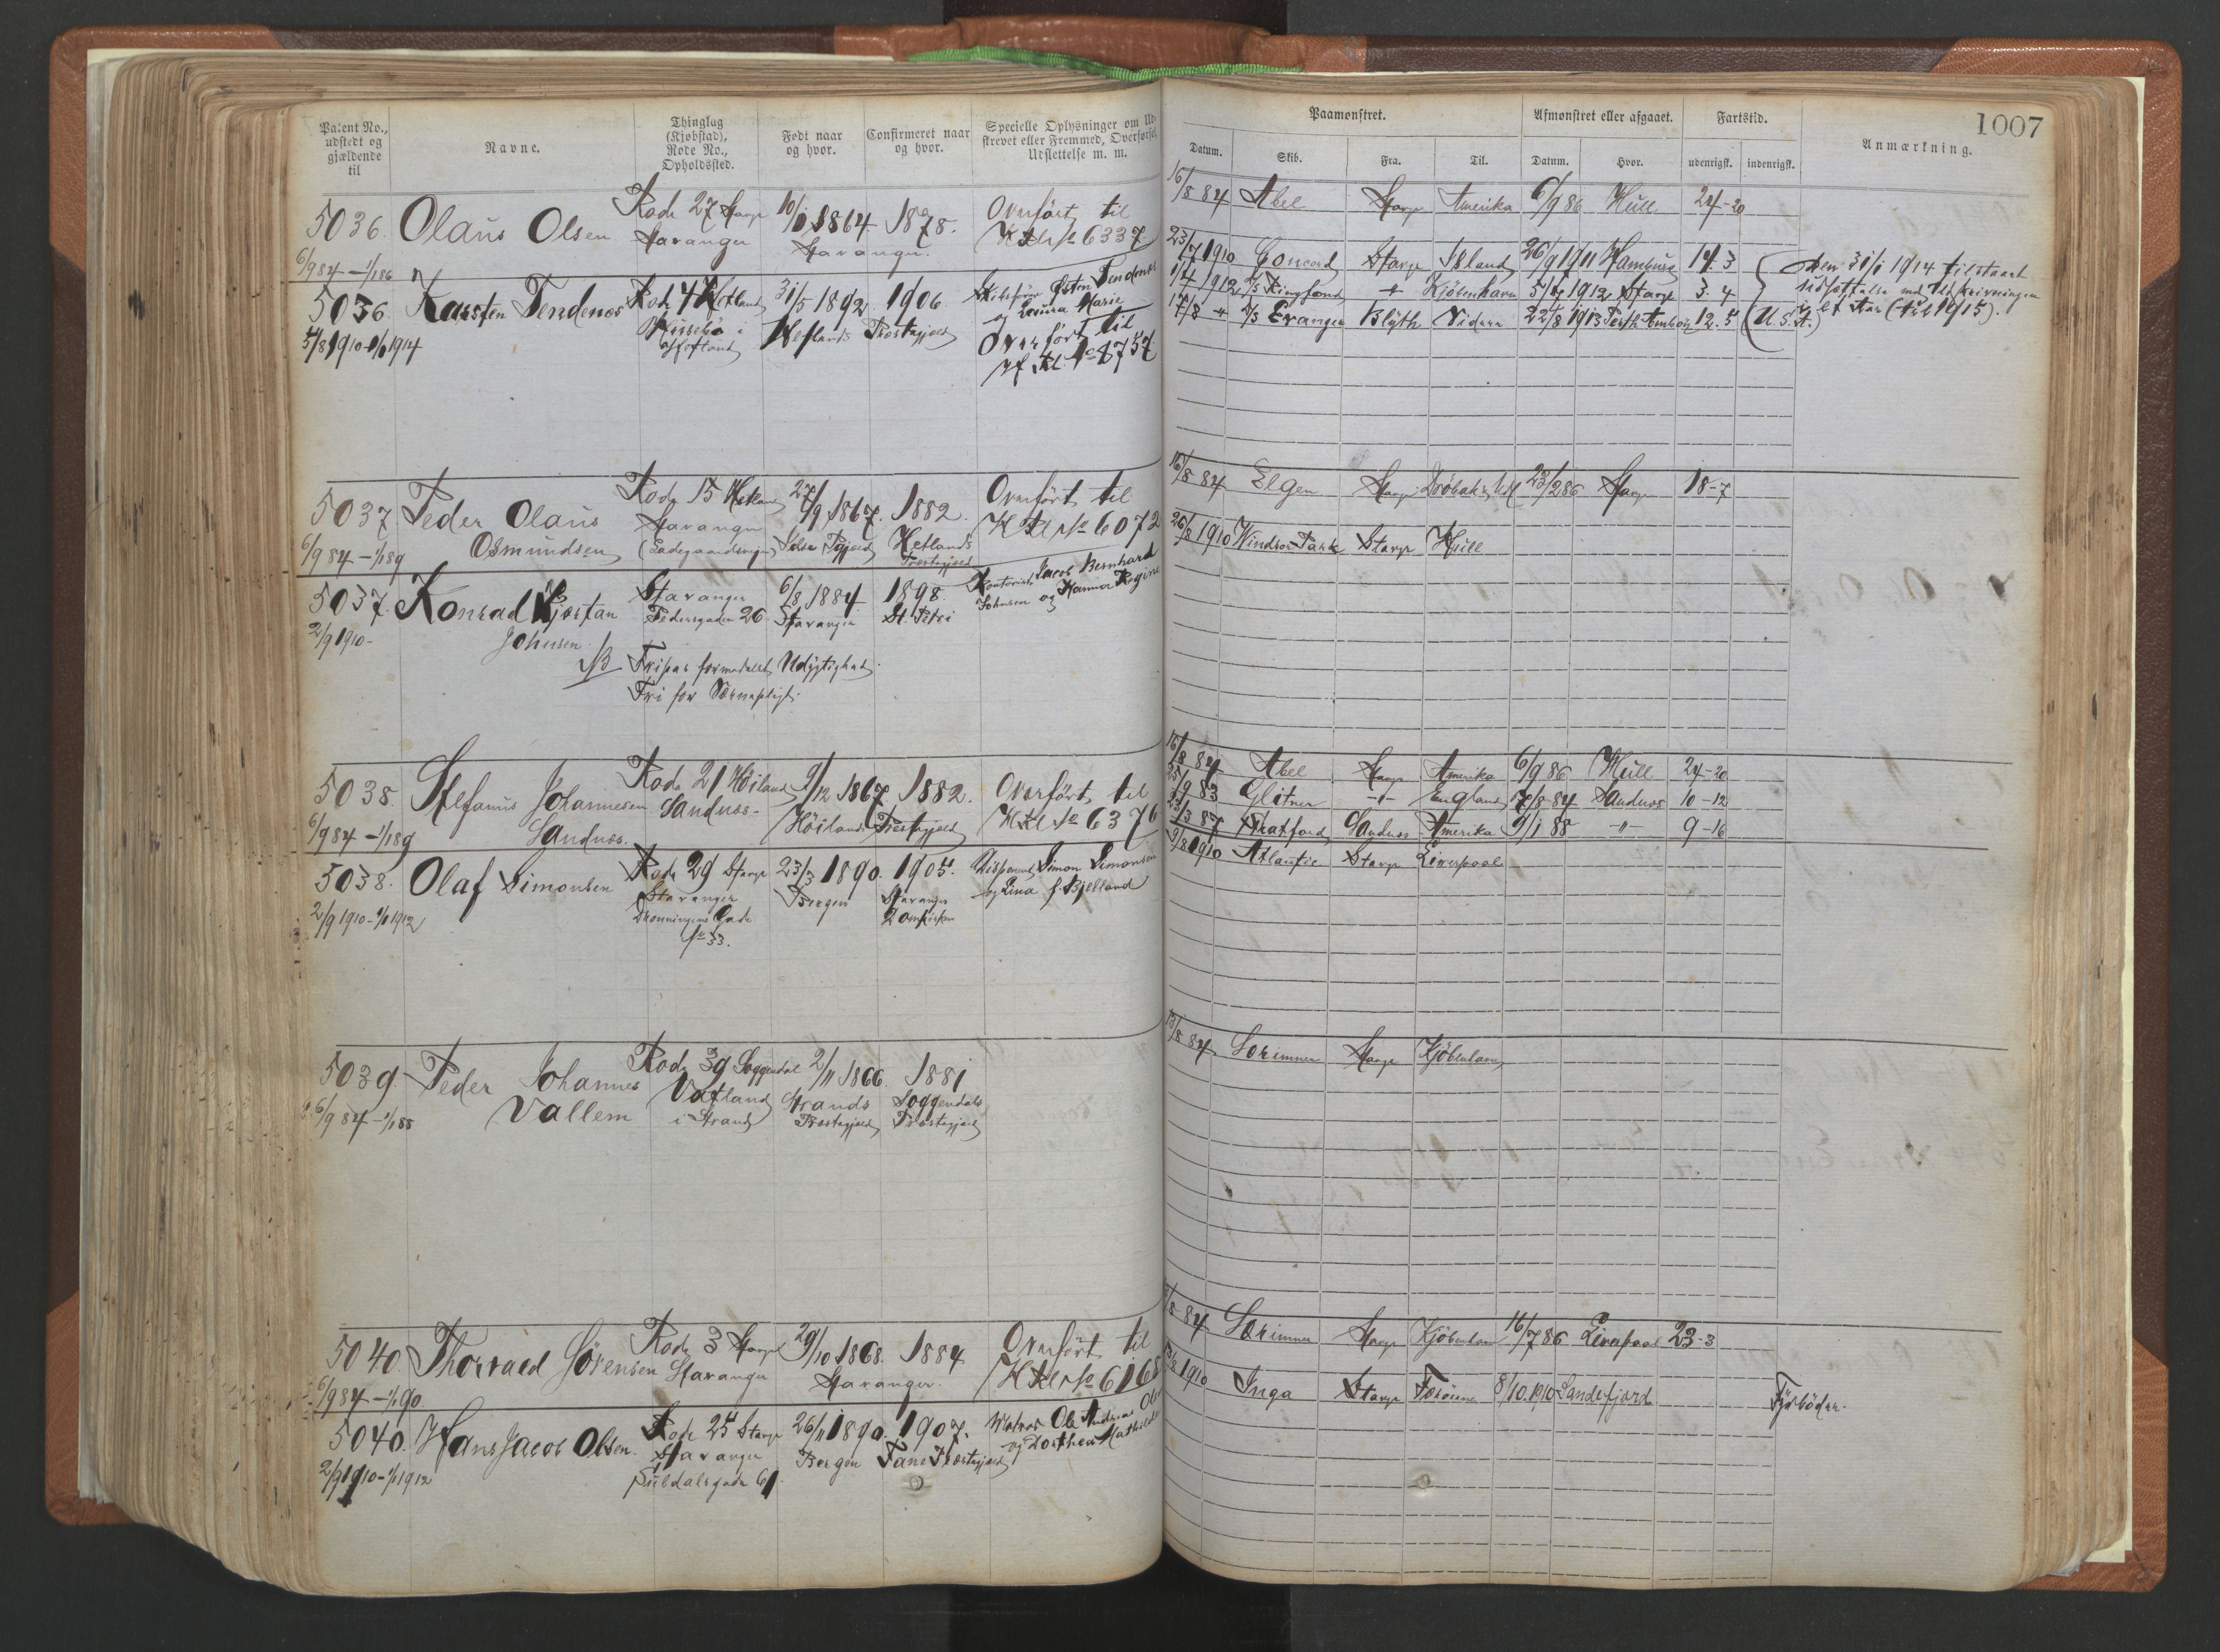 Patent No., udstedt og gjældende til
Navne.
Thinglag (Kjøbstad), Rode No., Opholdssted.
Født naar og hvor.
Confirmeret naar og hvor.
Specielle Oplysninger om Ud-
skrevet eller Fremmed, Overførsel,
Udslettelse m. m.
Paamønstret.
Datum.
Skib.
Fra.
Til.
Afmønstret eller afgaaet.
Datum.
Hvor.
Fartstid.
udenrigsk.
indenrigsk.
Anmærkning.
1007
5036. Olaus Olsen Rode 27 Stavgr 1864. 1878. Overført til
6/9 84 – 1/1 86 Stavanger Stavanger. No 6337
16/8 84 Abel Stavgr Amerika 6/9 86 Hull 24-20
5036. Karsten Tendenes Rode 4 Hetland 31/5 1892 1906
5/8 1910 – 1/1 1914 Hetland Præstegjeld
og Laura Marie
Overført til
No 8757
23/7 1910 Concord Stavgr Island 26/9 1911 Hamburg 14. 3
1/4 1912 Kjøbenhavn 5/7 1912 Stavgr 3. 4
17/8 " D/S Evanger Blyth Vidare 22/8 1913 Perth Amboy 12. 5 (U. S. A.)
Den 31/1 1914 tilstaaet
udsættelse med Udskrivningen
i et Aar (til 1915).
5037. Peder Olaus Rode 15 Hetland 27/9 1867. 1882. Overført til
Osmundsen Stavanger Hetlands No 6072
6/9 84 – 1/1 89 (Ladegaardsveien) Præstegjeld
16/8 84 Elgen Stavgr 23/2 86 Stavgr 18-7
5037. Konrad Kjærstan Stavanger 6/8 1884. 1898. Kontorist Jacob Bernhard
2/9 1910 – Johnsen. Pedersgaden 26. Stavanger St. Petri Johnsen og Hanna Regine
Fripas formedelst Udygtighed.
Fri for Værnepligt.
26/8 1910 Windsor Park Stavgr Hull
5038. Stefanus Johannesen Rode 21 Høiland 9/12 1867 1882. Overført til
6/9 84 – 1/1 89 Sandnæs. Sandnæs. Høilands Præstegjeld No 6376
16/8 84 Abel Stavgr Amerika 6/9 86 Hull 24-20
25/9 83 Glitner -"- England 17/8-84 Sandnæs 10-12
23/3 87 Stratford Sandnæs Amerika 9/1 88 -"- 9-16
5038. Olaf Simonsen Rode 29 Stavgr 23/3 1890. 1905. Disponent Simon Simonsen
2/9 1910 – 1/1 1912 Stavanger Bergen Stavanger og Lina f. Bjelland
Dronningens Gade Domkirken
No 33.
9/8 1910 Atlantic Stavgr Liverpool
5039. Peder Johannes Rode 39 Soggendal 2/11 1866. 1881
6/9 84 – 1/1 88 Vallem Vatland Strands Soggendals
i Strand Præstegjeld Præstegjeld
13/8 84 Særimner Stavgr Kjøbenhavn
5040. Thorvald Sörensen Rode 3 Stavgr 29/10 1868. 1884 Overført til
6/9 84 – 1/1 90 Stavanger Stavanger. No 6168
84 Særimner Stavgr Kjøbenhavn 16/7 86 Liverpool 23-3
5040. Hans Jacob Olsen. Rode 25 Stavgr 26/11 1890. 1907. Matros Ole Andreas Olsen
2/9 1910 – 1/1 1912 Stavanger Bergen Fane Præstegjeld og Dorthea Mathilde
Suldalsgade 61.
1910 Inga Stavgr Færøerne 8/10 1910 Sandefjord Fyrbøder.